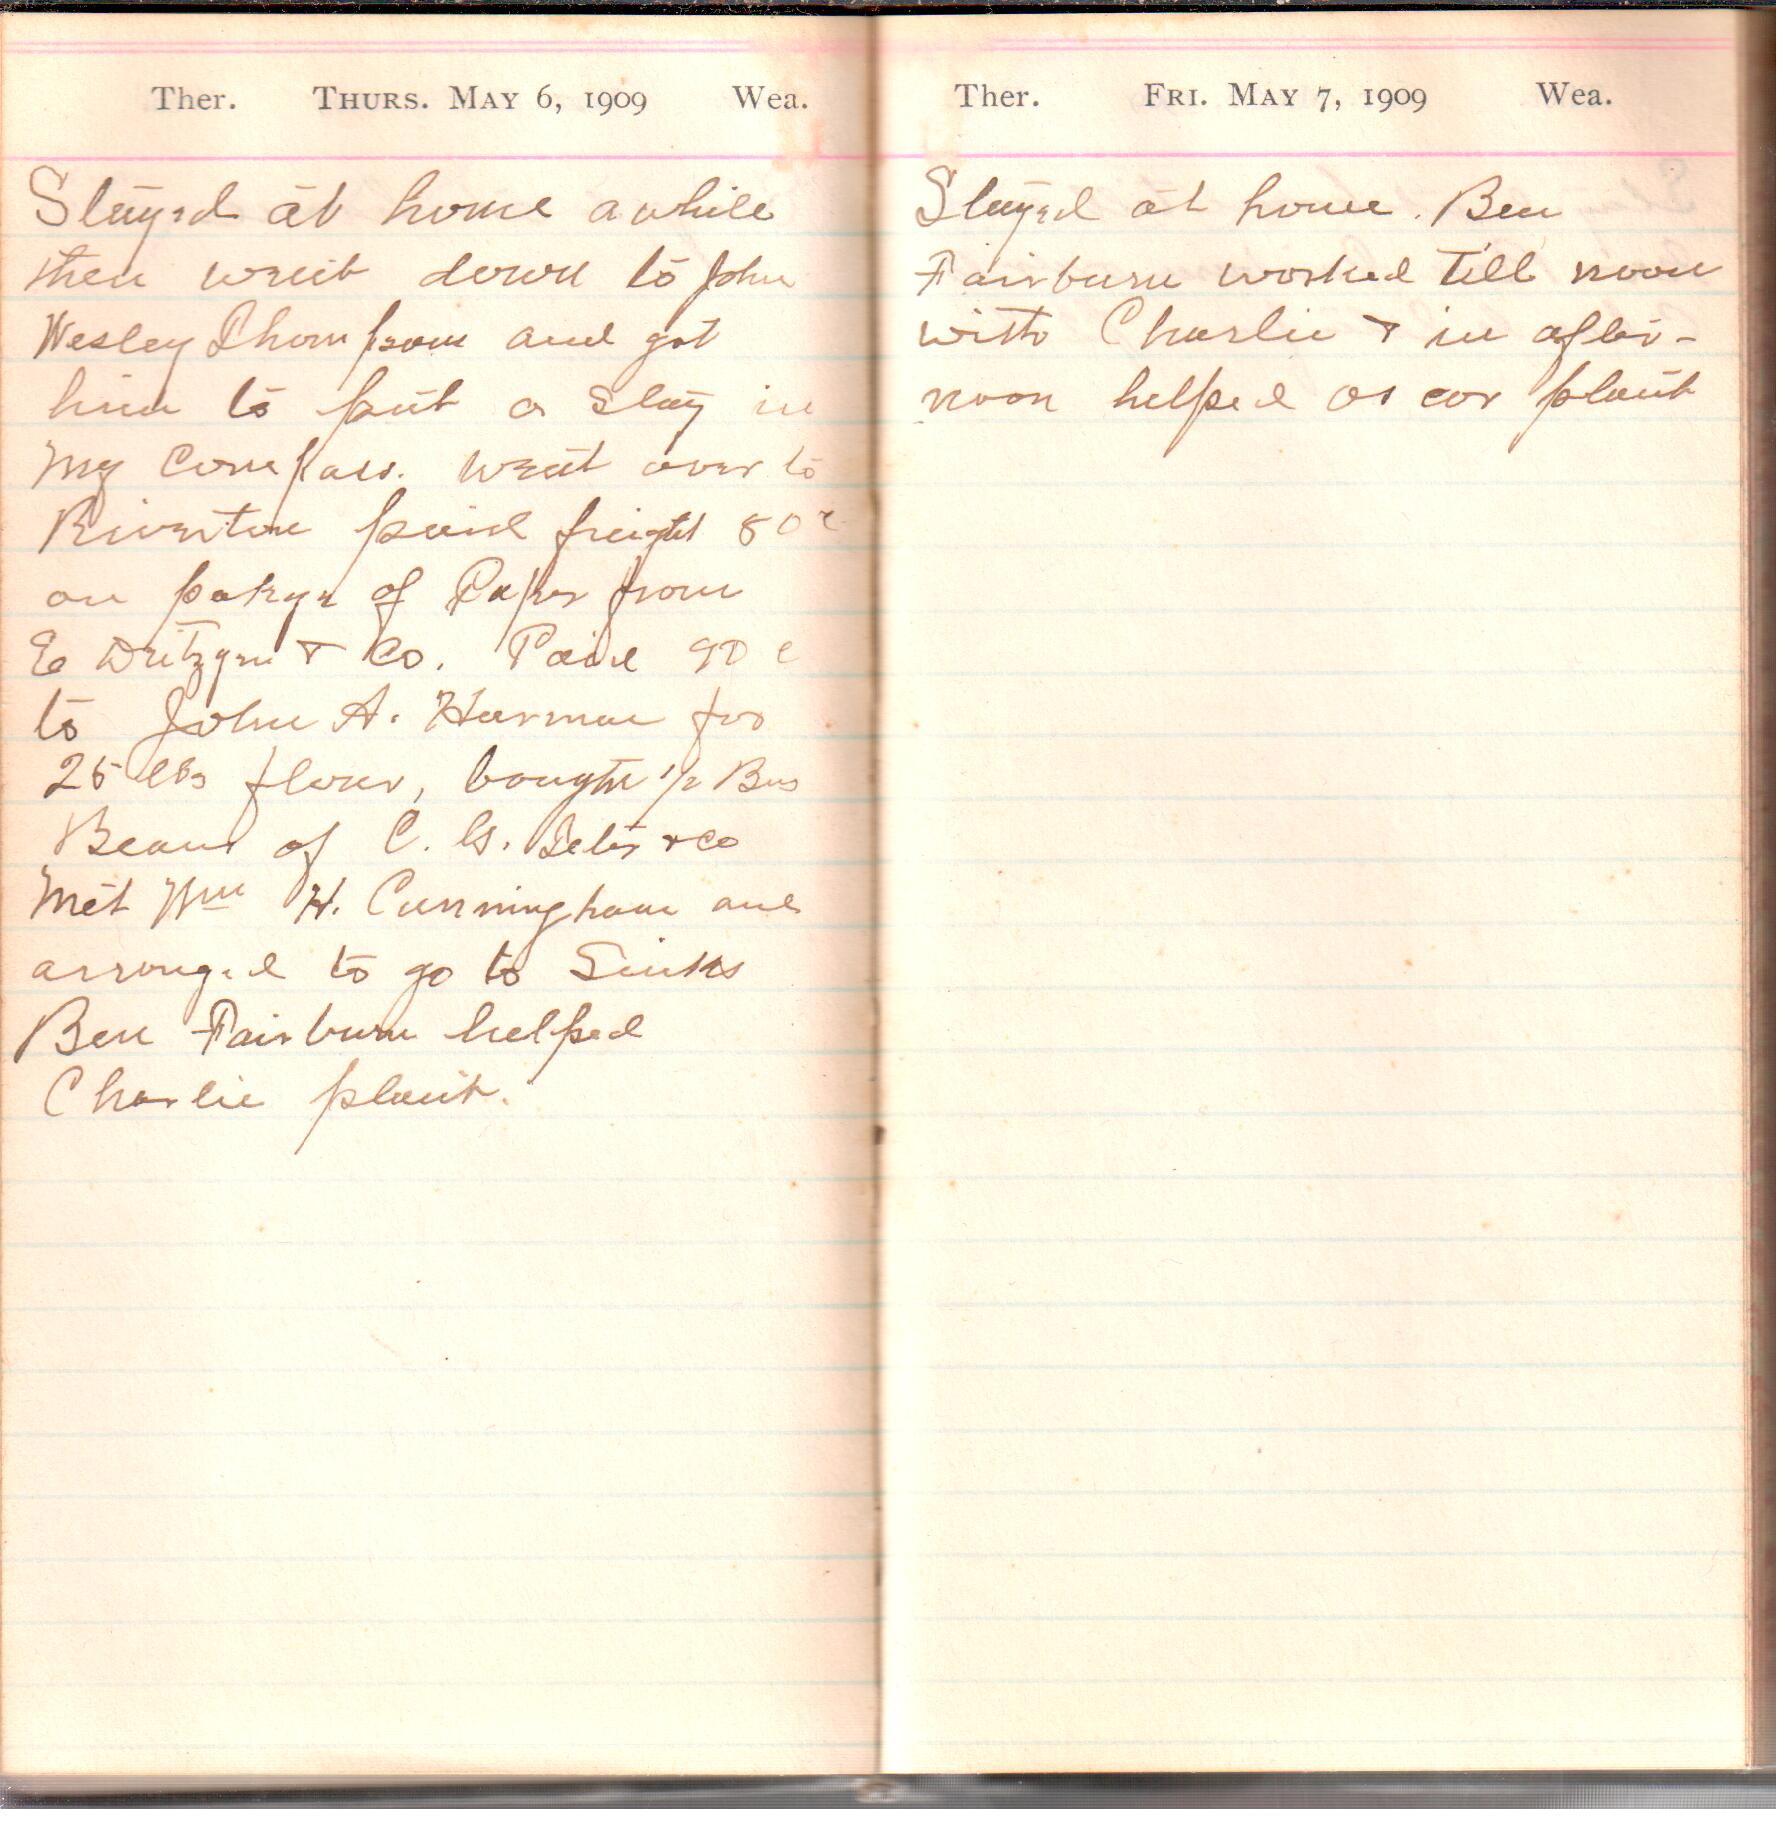 Ther. THURS. MAY 6, 1909 Wea.
Stayed at home awhile
then went down to John
Wesley Thompson and got
him to put a stay in
My Compass. Went over to
Riverton paid freight 80c
on pakge of Paper from
E Dietzgen & Co. Paid 90 c
to John A. Harman for
25 lbs flour, bought 1/2 Bus
Beans of C. G. & Co
Met Wm H. Cunningham and
arranged to go to Sinks
Ben Fairburn helped
Charlie plant.
Ther. FRI. MAY 7, 1909 Wea.
Stayed at home. Ben
Fairburn worked till noon
with Charlie & in after-
noon helped plant